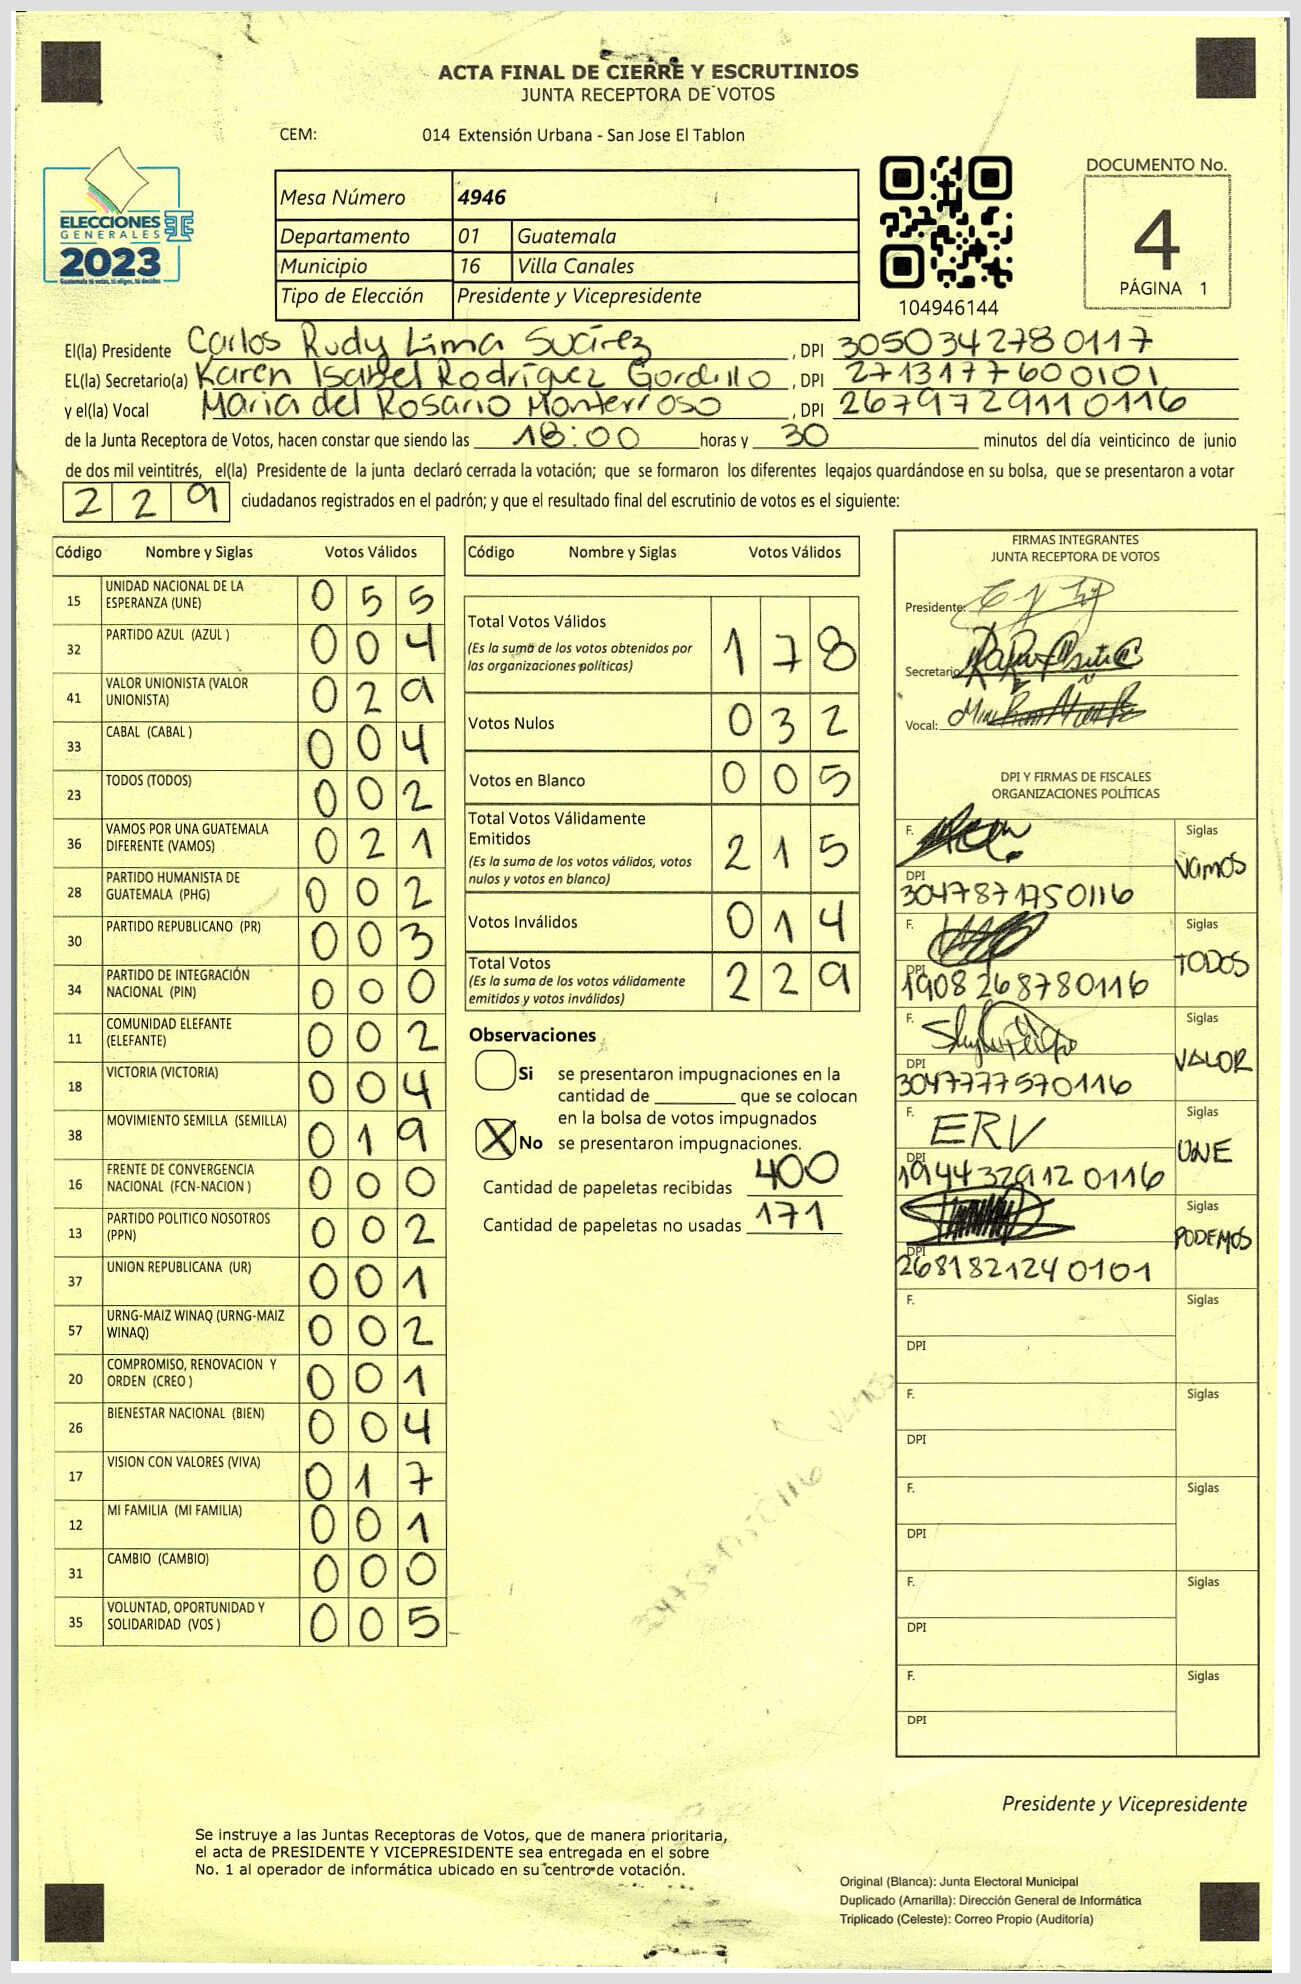 ACTA FINAL DE CIERRE Y ESCRUTINIOS
JUNTA RECEPTORA DE VOTOS
CEM: 014 Extensión Urbana - San Jose El Tablon
DOCUMENTO No.
4
PÁGINA 1
ELECCIONES
GENERALES
2023
Guatemala tú votas, tú eliges, tú decides
Mesa Número 4946
Departamento 01 Guatemala
Municipio 16 Villa Canales
Tipo de Elección Presidente y Vicepresidente
104946144
El(la) Presidente Carlos Rudy Lima Suárez, DPI 3050342780117
EL(la) Secretario(a) Karen Isabel Rodríguez Gordillo, DPI 2713177600101
y el(la) Vocal Maria del Rosario Monterroso, DPI 2679729110116
de la Junta Receptora de Votos, hacen constar que siendo las 18:00 horas y 30 minutos del día veinticinco de junio
de dos mil veintitrés, el(la) Presidente de la junta declaró cerrada la votación; que se formaron los diferentes legajos quardándose en su bolsa, que se presentaron a votar
229 ciudadanos registrados en el padrón; y que el resultado final del escrutinio de votos es el siguiente:
Código Nombre y Siglas Votos Válidos
15 UNIDAD NACIONAL DE LA ESPERANZA (UNE) 055
32 PARTIDO AZUL (AZUL ) 004
41 VALOR UNIONISTA (VALOR UNIONISTA) 029
33 CABAL (CABAL ) 004
23 TODOS (TODOS) 002
36 VAMOS POR UNA GUATEMALA DIFERENTE (VAMOS) 021
28 PARTIDO HUMANISTA DE GUATEMALA (PHG) 002
30 PARTIDO REPUBLICANO (PR) 003
34 PARTIDO DE INTEGRACIÓN NACIONAL (PIN) 000
11 COMUNIDAD ELEFANTE (ELEFANTE) 002
18 VICTORIA (VICTORIA) 004
38 MOVIMIENTO SEMILLA (SEMILLA) 019
16 FRENTE DE CONVERGENCIA NACIONAL (FCN-NACION ) 000
13 PARTIDO POLITICO NOSOTROS (PPN) 002
37 UNION REPUBLICANA (UR) 001
57 URNG-MAIZ WINAQ (URNG-MAIZ WINAQ) 002
20 COMPROMISO, RENOVACION Y ORDEN (CREO ) 001
26 BIENESTAR NACIONAL (BIEN) 004
17 VISION CON VALORES (VIVA) 017
12 MI FAMILIA (MI FAMILIA) 001
31 CAMBIO (CAMBIO) 000
35 VOLUNTAD, OPORTUNIDAD Y SOLIDARIDAD (VOS ) 005
Código Nombre y Siglas Votos Válidos
Total Votos Válidos 178
(Es la suma de los votos obtenidos por
las organizaciones políticas)
Votos Nulos 032
Votos en Blanco 005
Total Votos Válidamente
Emitidos 215
(Es la suma de los votos válidos, votos
nulos y votos en blanco)
Votos Inválidos 014
Total Votos 229
(Es la suma de los votos válidamente
emitidos y votos inválidos)
Observaciones
Si se presentaron impugnaciones en la
cantidad de ________ que se colocan
en la bolsa de votos impugnados
X No se presentaron impugnaciones.
Cantidad de papeletas recibidas 400
Cantidad de papeletas no usadas 171
FIRMAS INTEGRANTES
JUNTA RECEPTORA DE VOTOS
Presidente:
Secretario
Vocal:
DPI Y FIRMAS DE FISCALES
ORGANIZACIONES POLÍTICAS
F. Siglas
VAMOS
DPI
3047871750116
F. Siglas
TODOS
DPI
1908268780116
F. Siglas
VALOR
DPI
3047777570116
F. ERV Siglas
UNE
DPI
1944329120116
Siglas
PODEMOS
DPI
2681821240101
F. Siglas
DPI
F. Siglas
DPI
F. Siglas
DPI
F. Siglas
DPI
F. Siglas
DPI
Presidente y Vicepresidente
Se instruye a las Juntas Receptoras de Votos, que de manera prioritaria,
el acta de PRESIDENTE Y VICEPRESIDENTE sea entregada en el sobre
No. 1 al operador de informática ubicado en su centro de votación.
Original (Blanca): Junta Electoral Municipal
Duplicado (Amarilla): Dirección General de Informática
Triplicado (Celeste): Correo Propio (Auditoría)